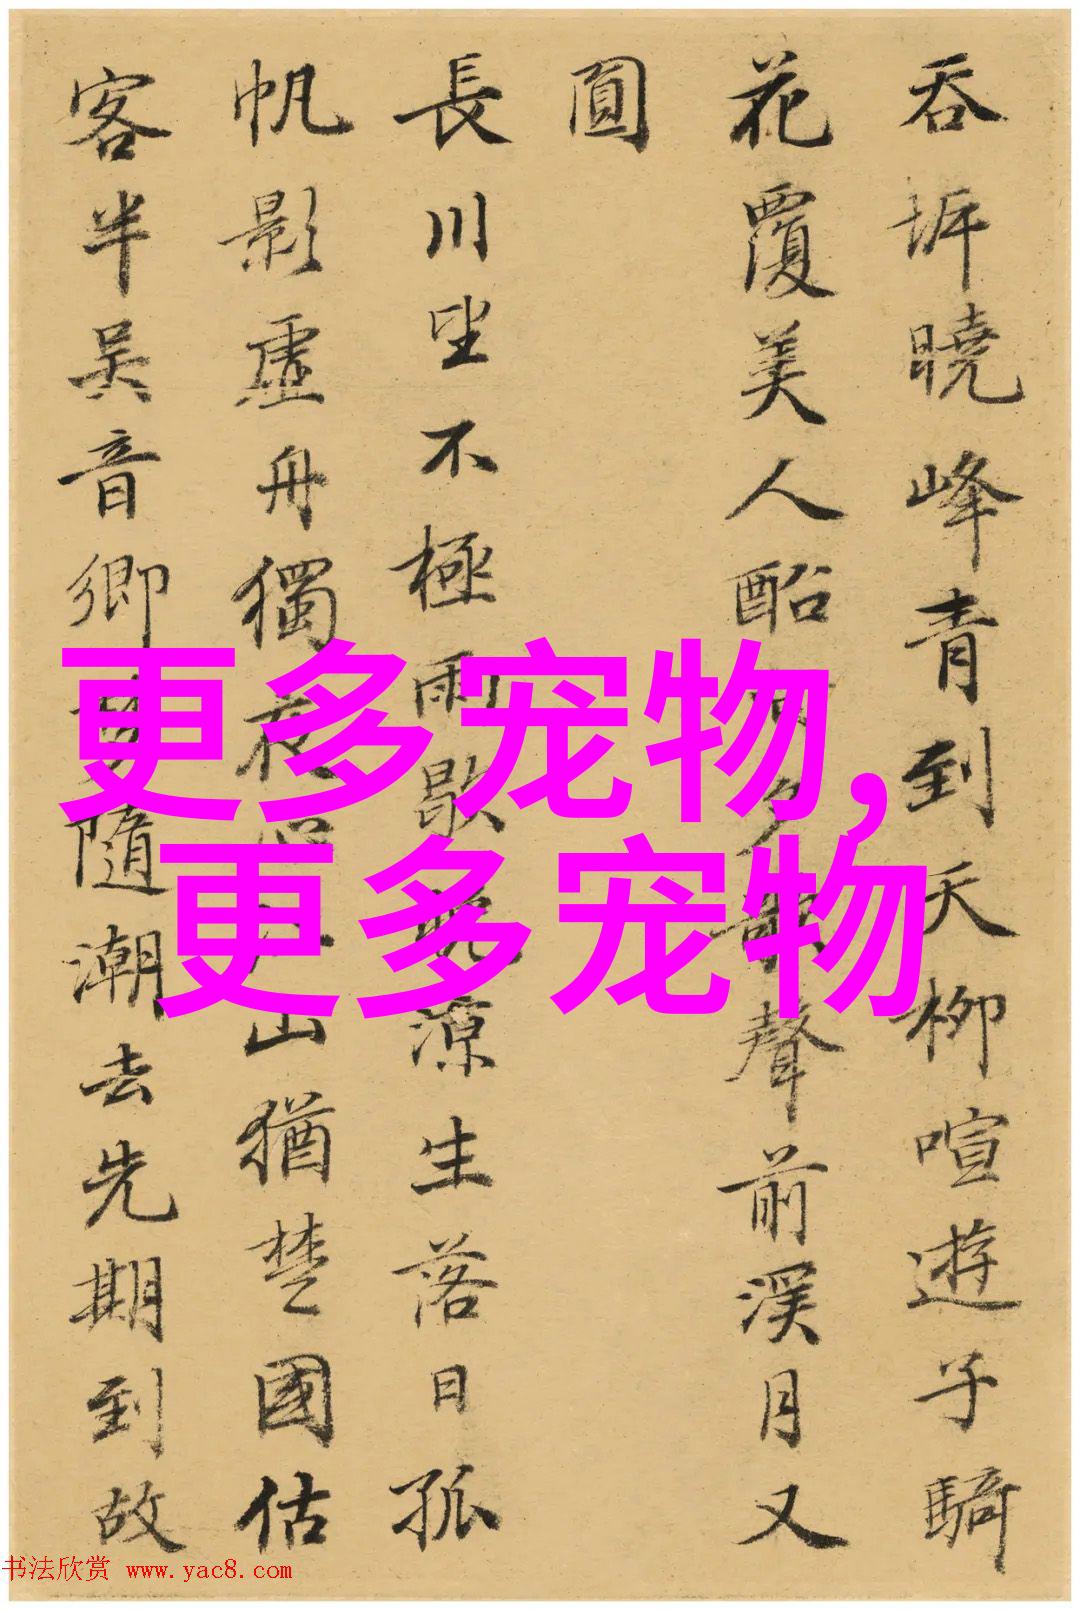 吞坼曉峰青到天柳喧遊子騎
花覆美人夕歌聲前溪月又
圓
長川坐不極雨歇晚涼生落日孤
帆影虛舟獨夜山猶楚國估
客半吳音鄉隨潮去先期到故
更多宠物,
更多宠物
书法欣赏 www.yac8.com